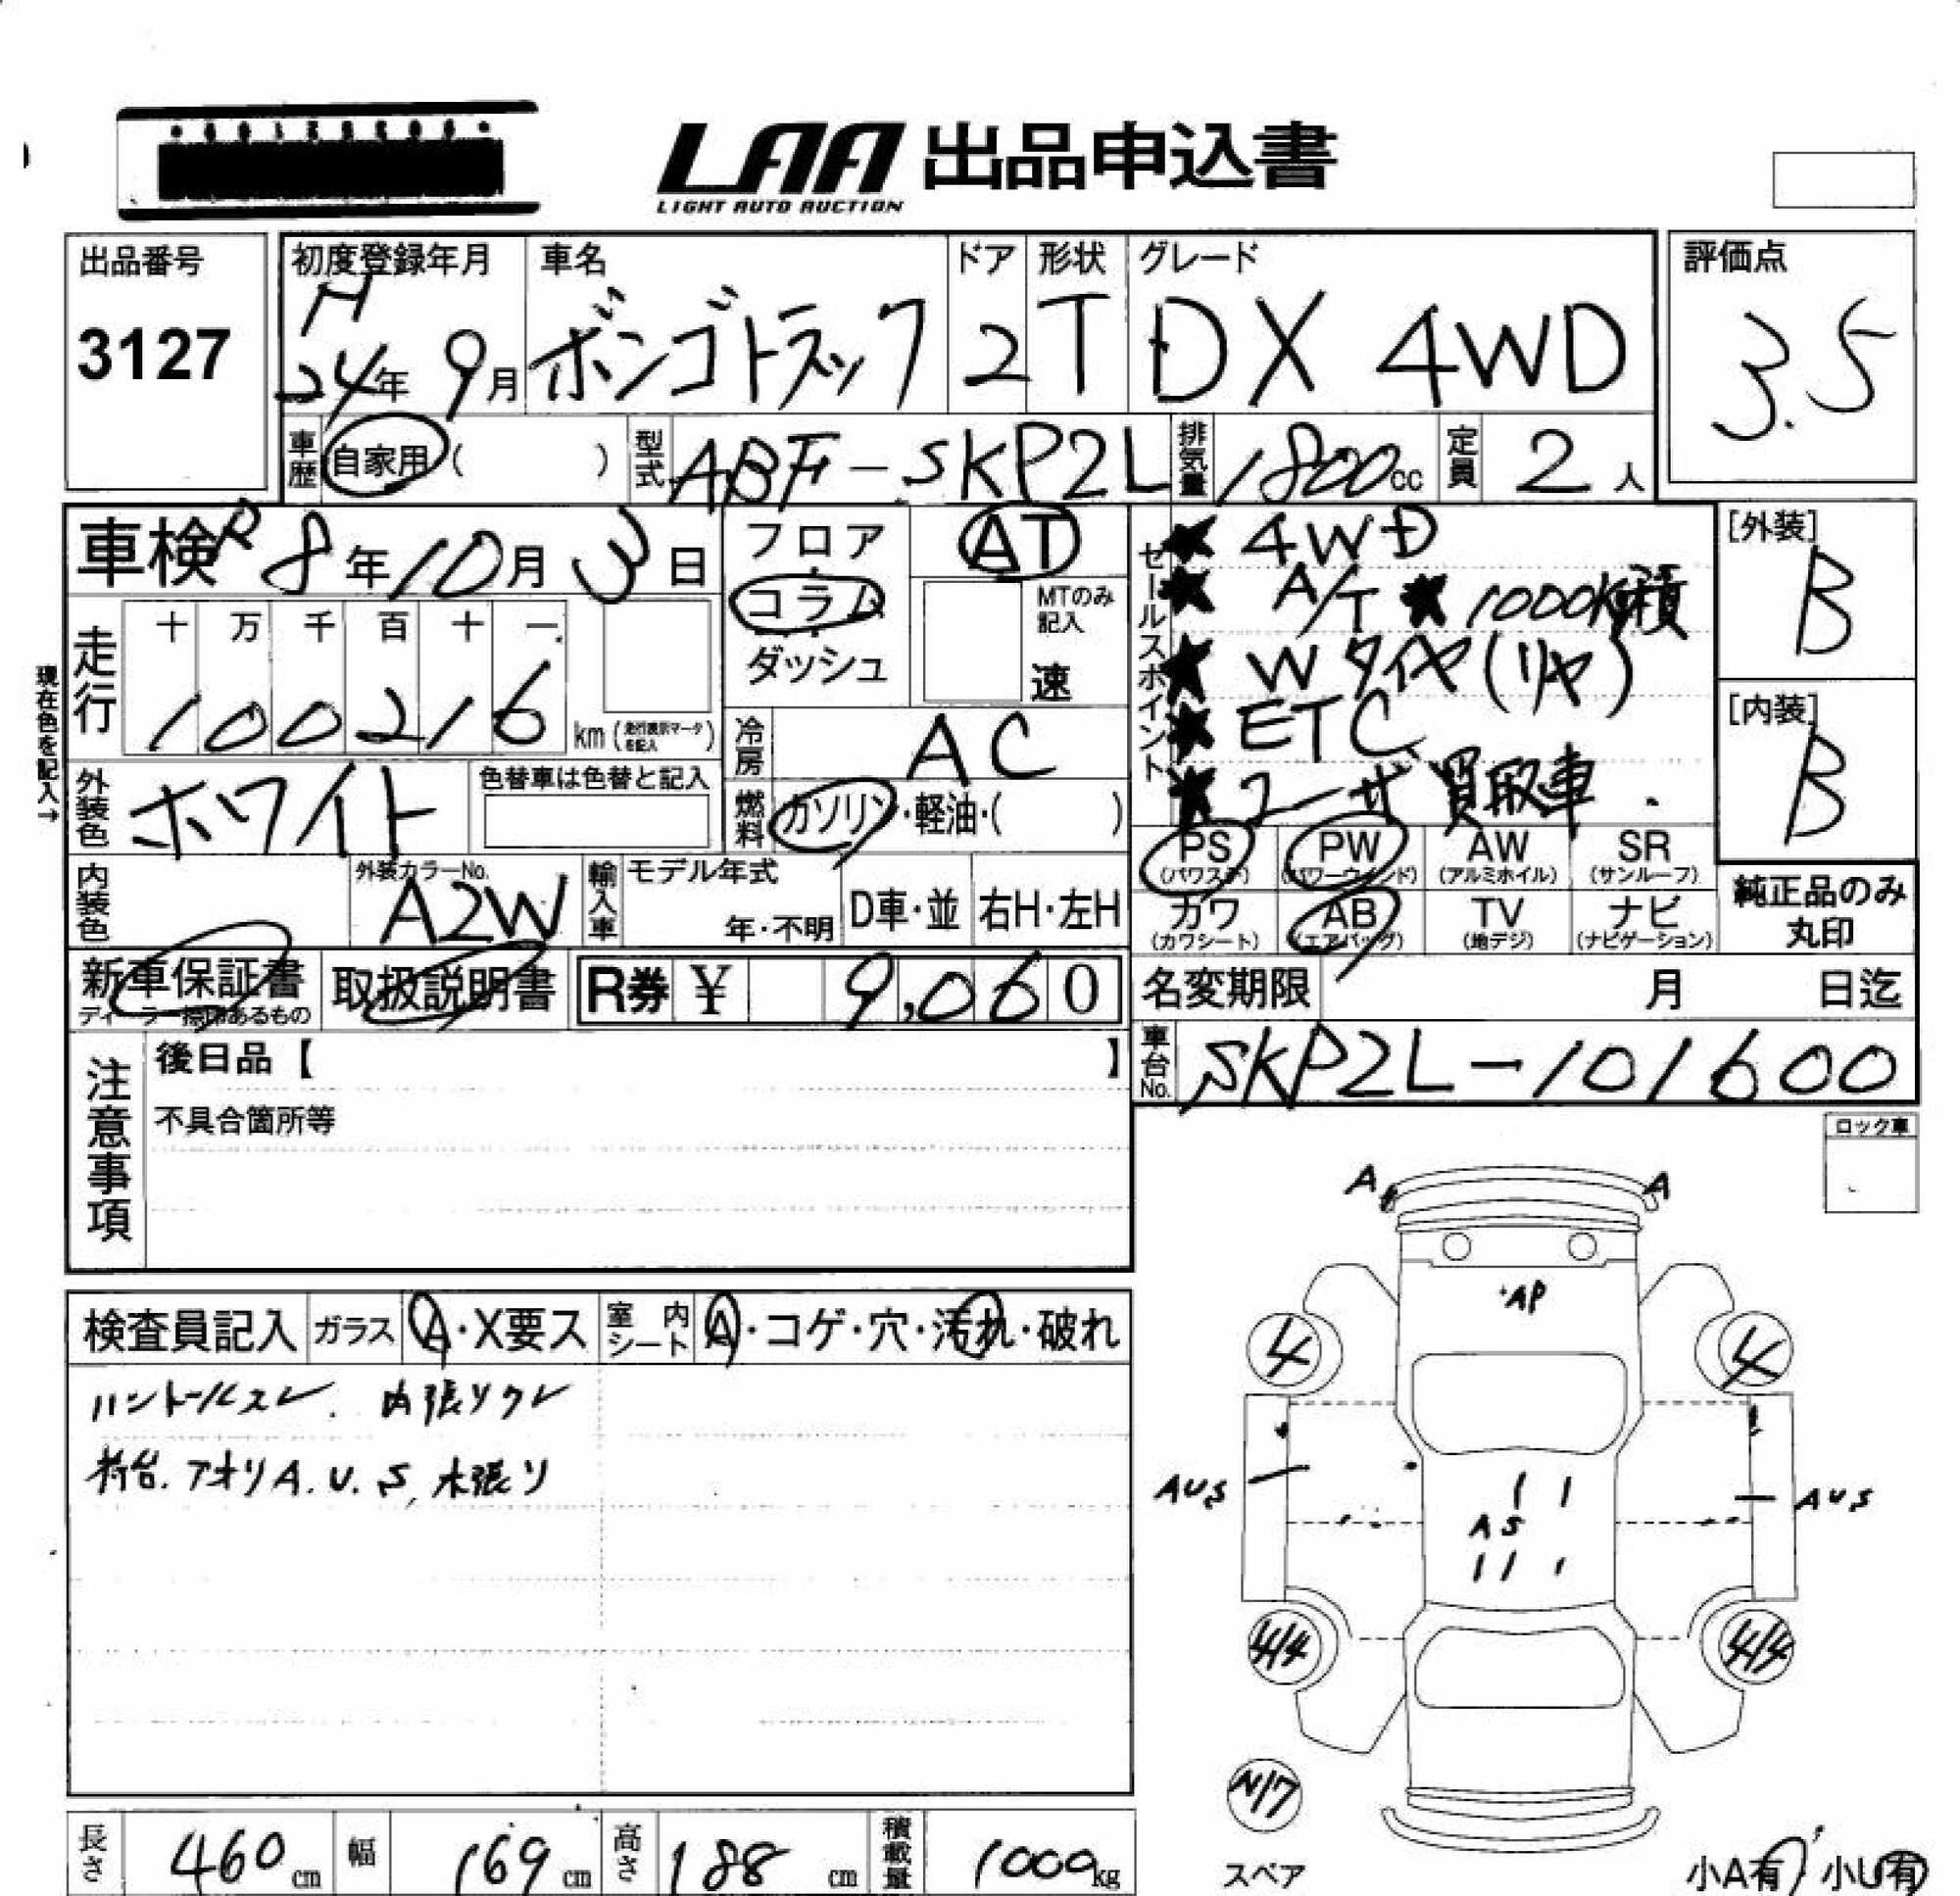 LAA 出品申込書
LIGHT AUTO AUCTION
出品番号
3127
初度登録年月
H
24年 9月
車名
ボンゴトラック
ドア
2
形状
T
グレード
DX 4WD
評価点
3.5
車歴
自家用 ( )
型式
ABF-SKP2L
排気量
1800cc
定員
2人
車検 R8年10月3日
フロア
コラム
ダッシュ
AT
MTのみ
記入
速
セールスポイント
★ 4WD
★ A/T ★ 1000kg積
★ Wタイヤ(リヤ)
★ ETC
★ ユーザ買取車.
[外装]
B
[内装]
B
現在色を記入→
走行
十 万 千 百 十 一
100216 km (走行表示マークを記入)
冷房
AC
外装色
ホワイト
色替車は色替と記入
燃料
ガソリン・軽油・( )
PS
(パワステ)
PW
(パワーウインド)
AW
(アルミホイル)
SR
(サンルーフ)
カワ
(カワシート)
AB
(エアバッグ)
TV
(地デジ)
ナビ
(ナビゲーション)
純正品のみ
丸印
内装色
外装カラーNo.
A2W
輸入車
モデル年式
年・不明
D車・並
右H・左H
新車保証書
取扱説明書
R券 ¥ 9,060
名変期限 月 日迄
車台No.
SKP2L-101600
注意事項
後日品【 】
不具合箇所等
ロック車
検査員記入
ガラス
A・X要ス
室内
シート
A・コゲ・穴・汚れ・破れ
ハンドルスレ. 内張リクレ
荷台. アオリA.U.S, 木張リ
A A
AP
4 4
AUS AUS
AS
4/4 4/4
N/7
スペア
小A有 小U有
長さ
460cm
幅
169cm
高さ
188cm
積載量
1000kg